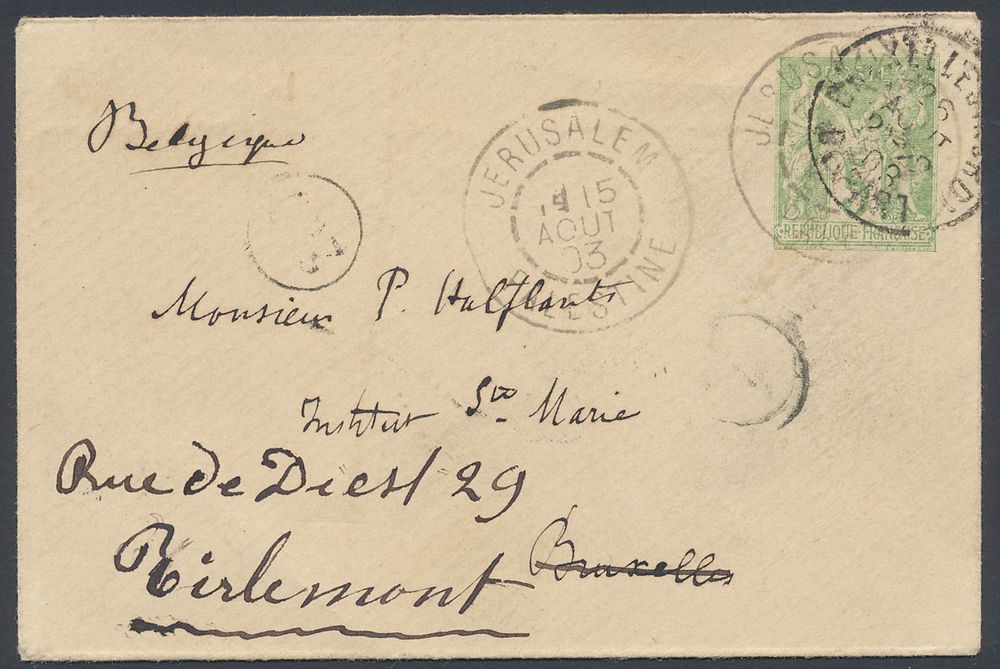 Belgique
JERUSALEM
15
AOUT
03
PALESTINE
REPUBLIQUE FRANÇAISE
Monsieur P. Halflants
Institut Ste Marie
Rue de Diest 29
Tirlemont
Bruxelles